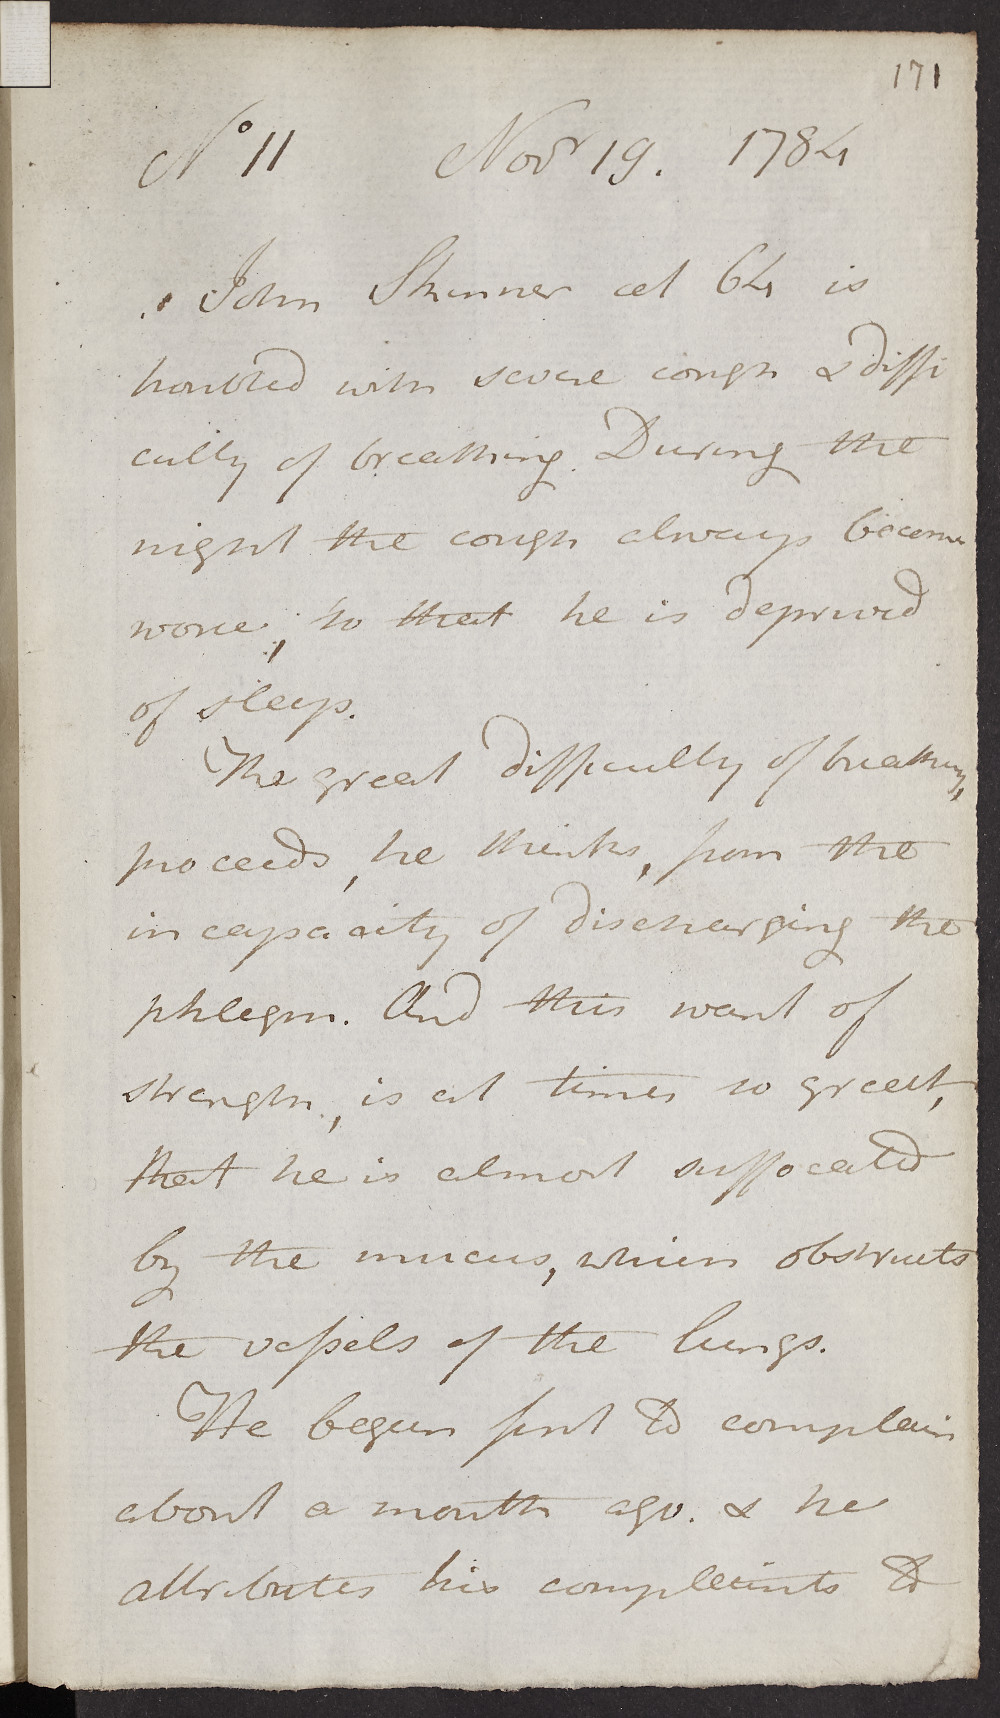 171
No 11 Novr 19. 1784
John Skinner aet 64 is
troubled with severe cough & diffi
culty of breathing. During the
night the cough always becomes
worse; so that he is deprived
of sleep.
The great difficulty of breathing,
proceeds, he thinks, from the
incapacity of discharging the
phlegm. And this want of
strength, is at times so great,
that he is almost suffocated
by the mucus, which obstructs
the vessels of the lungs.
He began first to complain
about a month ago. & he
attributes his complaints to